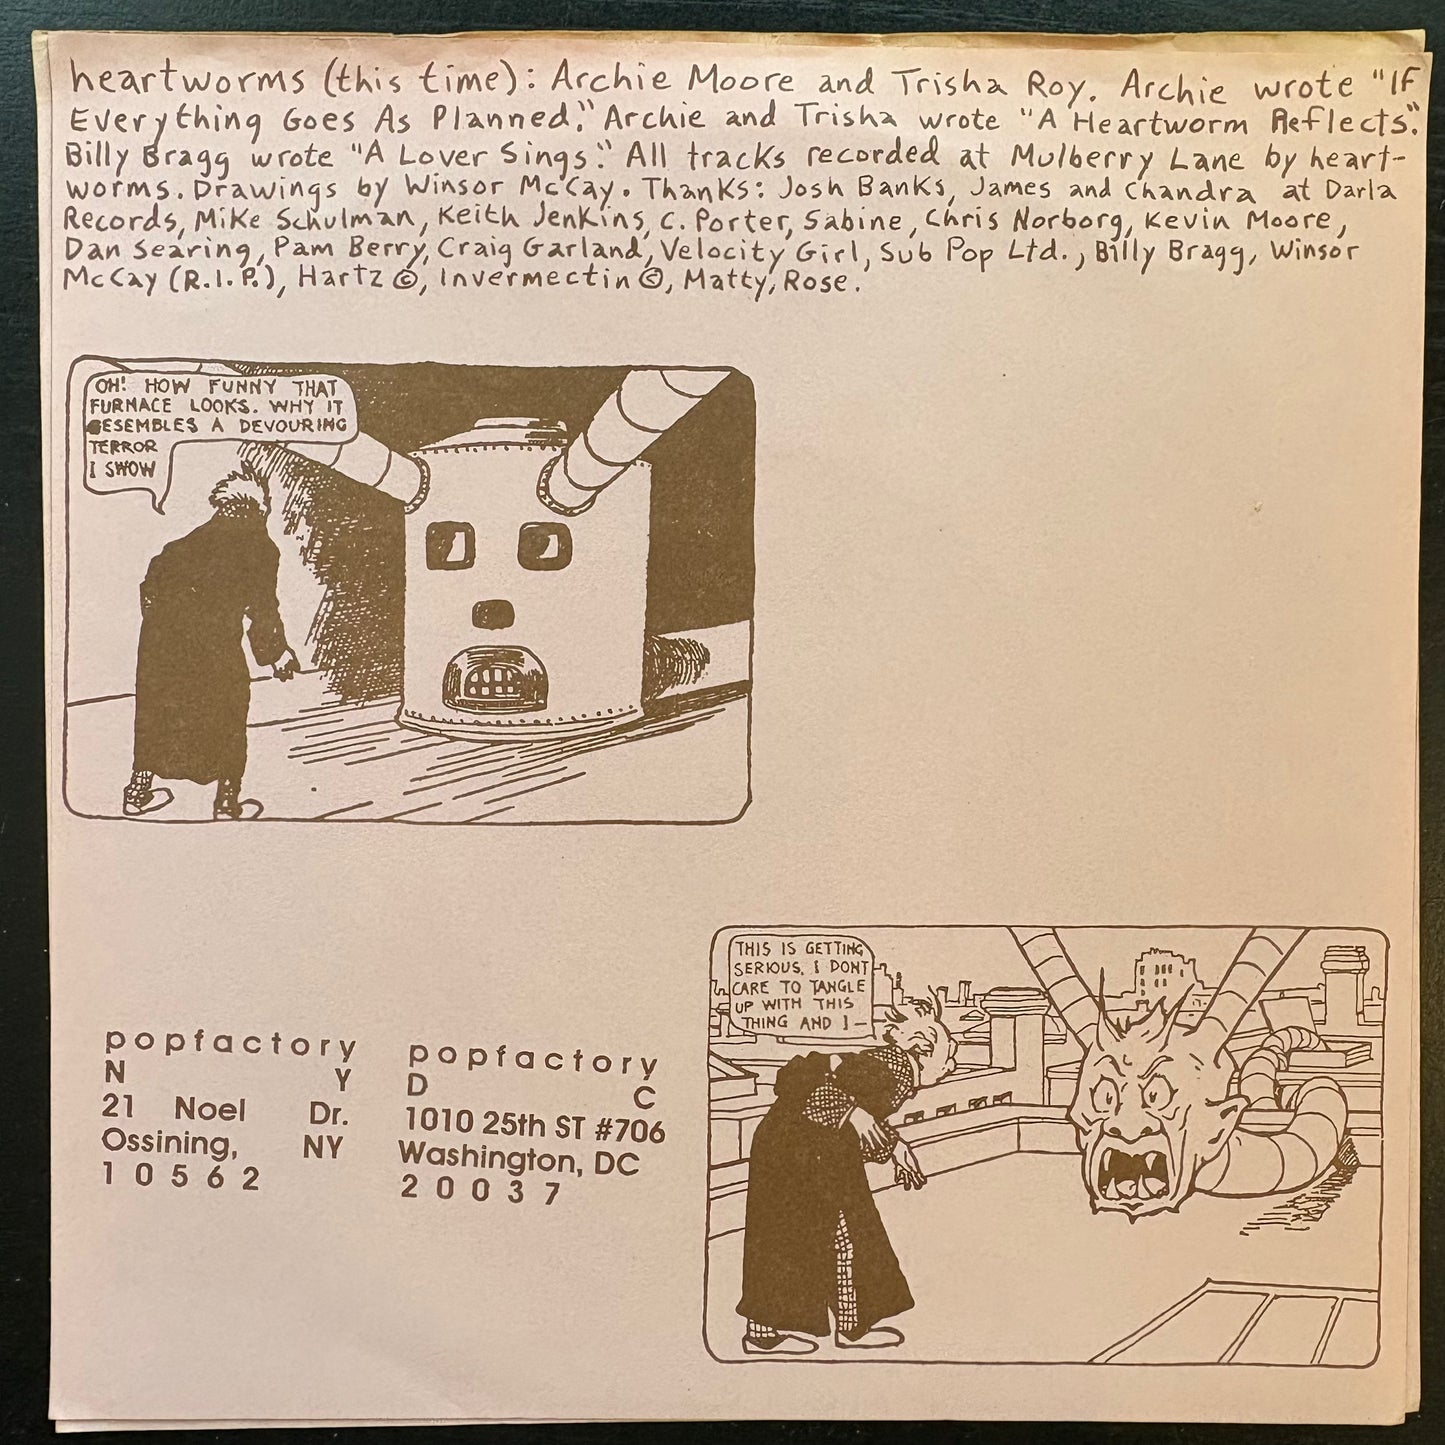 heartworms (this time): Archie Moore and Trisha Roy. Archie wrote "If
Everything Goes As Planned." Archie and Trisha wrote "A Heartworm Reflects."
Billy Bragg wrote "A Lover Sings." All tracks recorded at Mulberry Lane by heart-
worms. Drawings by Winsor McCay. Thanks: Josh Banks, James and Chandra at Darla
Records, Mike Schulman, Keith Jenkins, C. Porter, Sabine, Chris Norborg, Kevin Moore,
Dan Searing, Pam Berry, Craig Garland, Velocity Girl, Sub Pop Ltd., Billy Bragg, Winsor
McCay (R.I.P.), Hartz ©, Invermectin ©, Matty, Rose.
OH! HOW FUNNY THAT
FURNACE LOOKS. WHY IT
RESEMBLES A DEVOURING
TERROR
I SWOW
THIS IS GETTING
SERIOUS. I DONT
CARE TO TANGLE
UP WITH THIS
THING AND I—
popfactory
N Y
21 Noel Dr.
Ossining, NY
10562
popfactory
D C
1010 25th ST #706
Washington, DC
20037